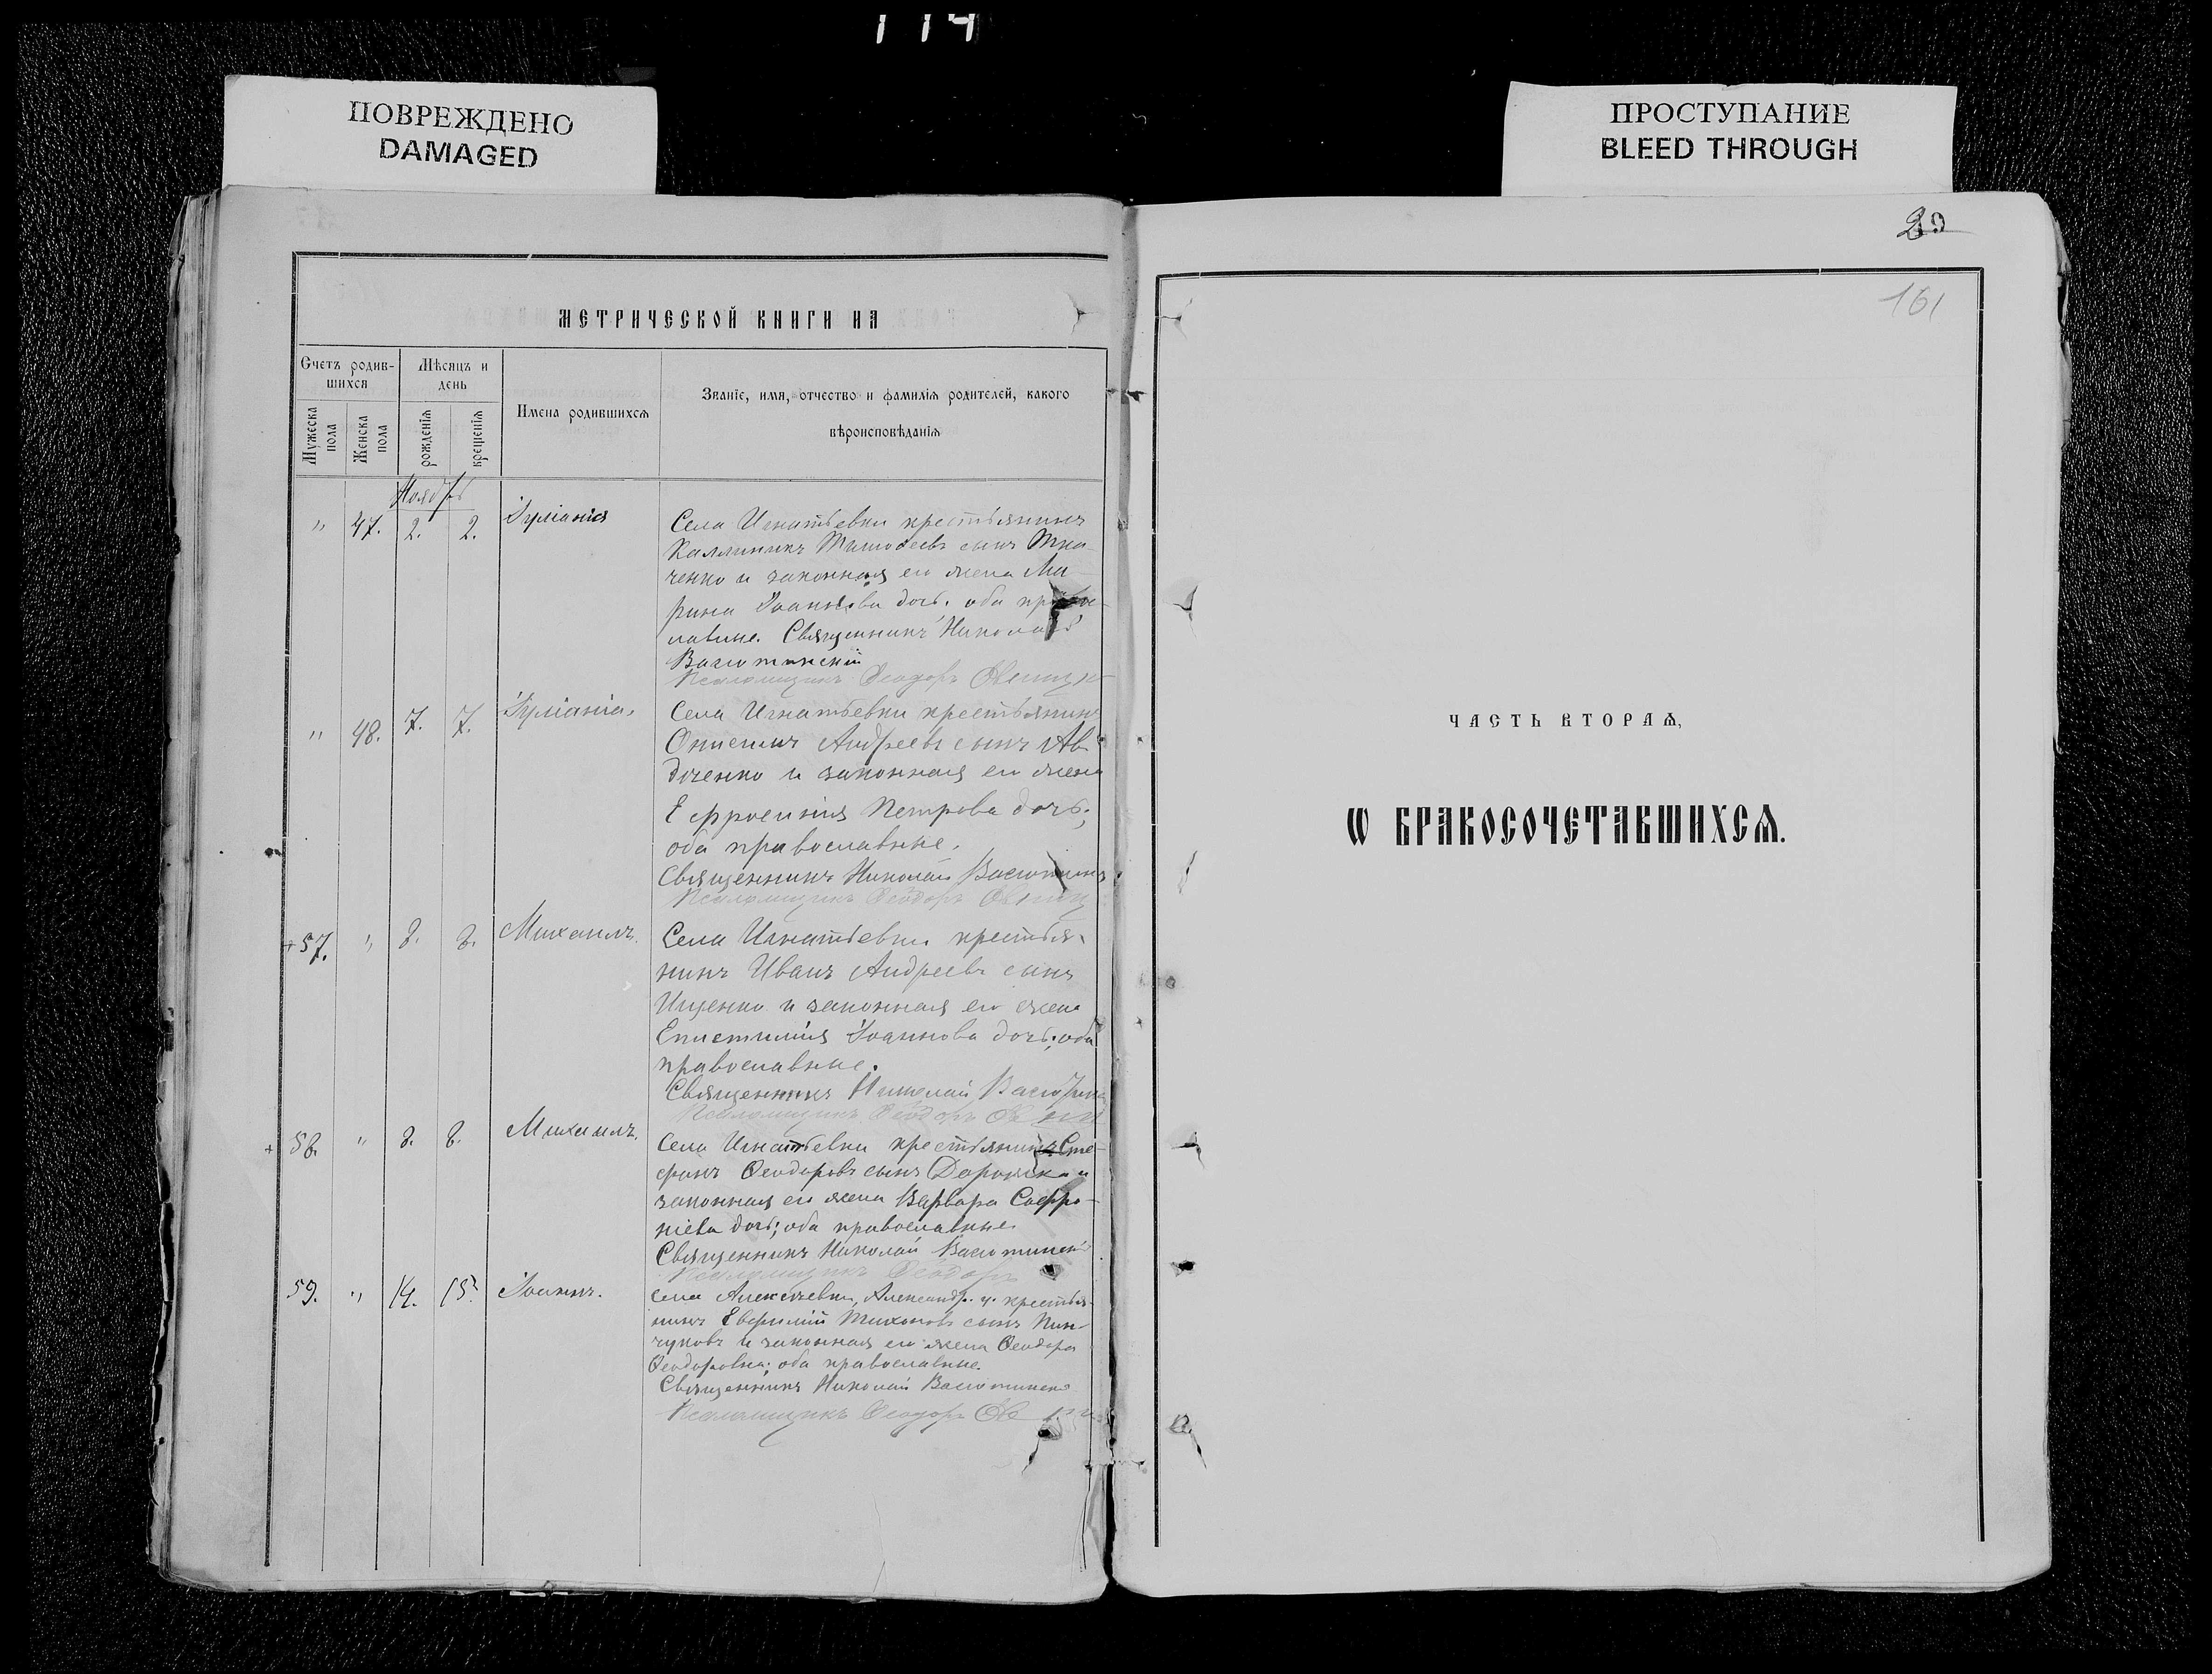 114
ПОВРЕЖДЕНО
DAMAGED
ПРОСТУПАНИЕ
BLEED THROUGH
МЕТРИЧЕСКОЙ КНИГИ НА
Счетъ родив-
шихся
Мѣсяцъ и
день
Мужеска
пола
Женска
пола
рожденія
крещенія
Имена родившихсѧ
Званіе, имя, отчество и фамилія родителей, какого
вѣроисповѣданія
Ноябрь
" 47. 2. 2. Іуліанія
Села Игнатьевки крестьянинъ
Каллиникъ Тимоѳеевъ сынъ Тка-
ченко и законная его жена Ма-
рина Іоаннова дочь. оба правос-
лавные. Священникъ Николай
Васютинскій
Псаломщикъ Ѳеодоръ
" 48. 7. 7. Іуліанія.
Села Игнатьевки крестьянинъ
Онисимъ Андреевъ сынъ Ав-
доченко и законная его жена
Ефросинія Петрова дочь;
оба православные.
Священникъ Николай Васютинс
Псаломщикъ Ѳеодоръ
+ 57. " 8. 8. Михаилъ.
Села Игнатьевки крестья-
нинъ Иванъ Андреевъ сынъ
Ищенко и законная его жена
Епистимія Іоаннова дочь; оба
православные.
Священникъ Николай Васютин
Псаломщикъ Ѳеодоръ
+ 58. " 8. 8. Михаилъ.
Села Игнатьевки крестьянинъ Сте-
фанъ Ѳеодоровъ сынъ и
законная его жена Варвара Софро-
ніева дочь; оба православные
Священникъ Николай Васютинскі
Псаломщикъ Ѳеодоръ
59. " 14. 15. Іоаннъ.
Села Алексѣевки, Александр. у. крестья-
нинъ Евфимій Тихоновъ сынъ Пин-
чуковъ и законная его жена Ѳеодора
Ѳеодоровна; оба православные.
Священникъ Николай Васютинск
Псаломщикъ Ѳеодоръ
161
ЧАСТЬ ВТОРАѦ,
Ѡ БРАКОСОЧЕТАВШИХСѦ.